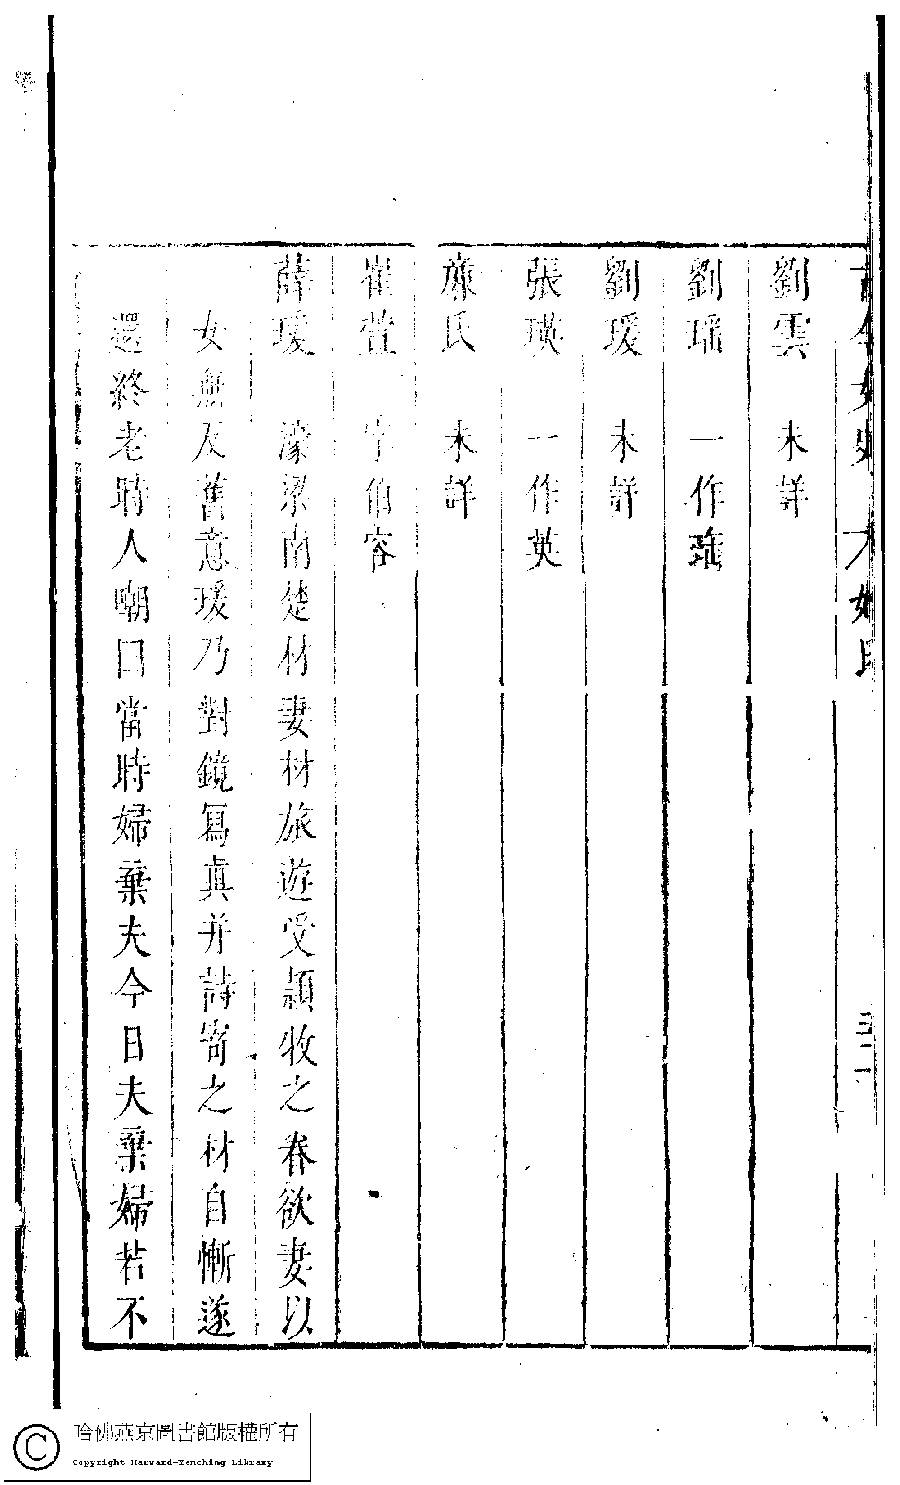 女史 姓氏
劉雲 未詳
劉瑶 一作瑤
劉瑗 未詳
張瑛 一作英
廉氏 未詳
崔萱 字伯容
薛瑗 濠梁南楚材妻材旅遊受頴牧之眷欲妻以
女無反舊意瑗乃對鏡寫真并詩寄之材自慚遂
還終老時人嘲曰當時婦棄夫今日夫棄婦若不
哈佛燕京圖書館版權所有
Copyright Harvard-Yenching Library